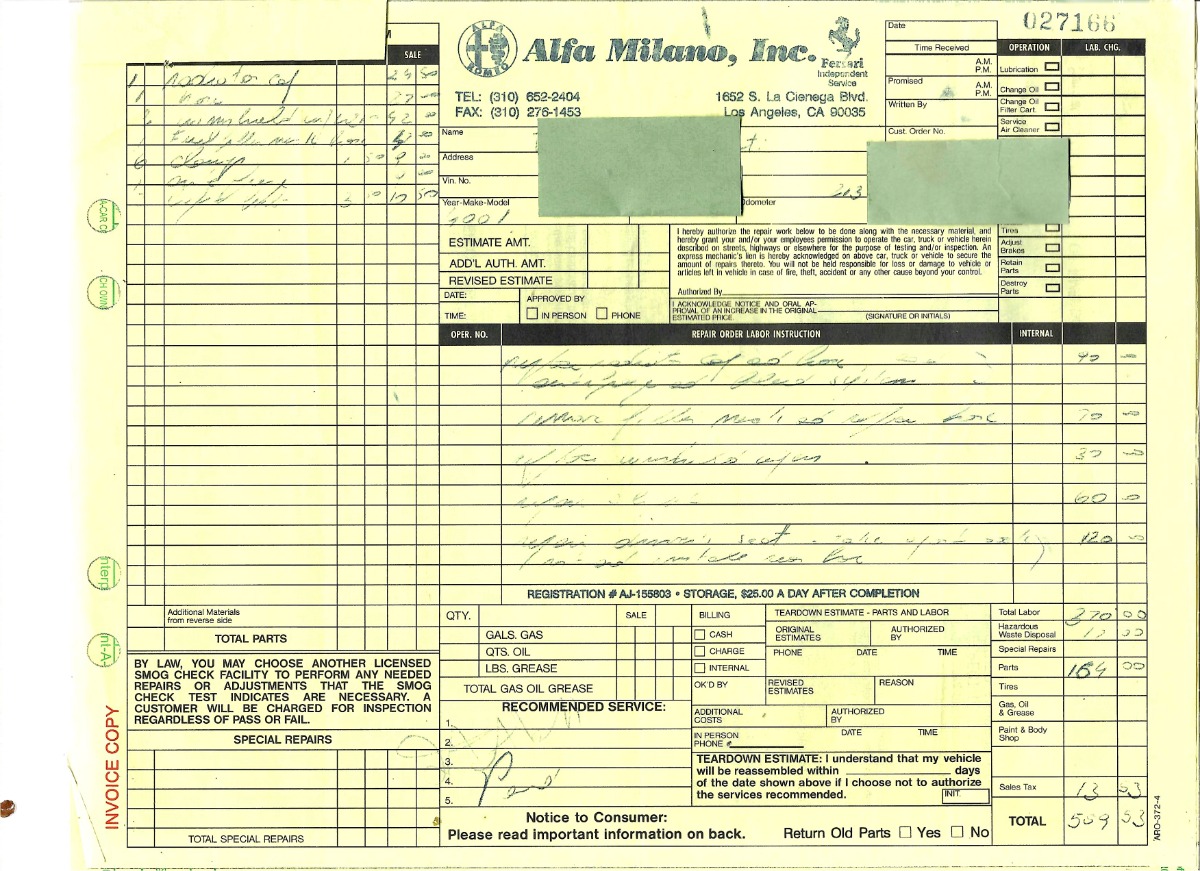 027166
SALE
ALFA ROMEO
Alfa Milano, Inc.
Ferrari
Independent
Service
TEL: (310) 652-2404
FAX: (310) 276-1453
1652 S. La Cienega Blvd.
Los Angeles, CA 90035
Date
Time Received
A.M.
P.M.
Promised
A.M.
P.M.
Written By
Cust. Order No.
OPERATION LAB. CHG.
Lubrication
Change Oil
Change Oil
Filter Cart.
Service
Air Cleaner
Tires
Adjust
Brakes
Retain
Parts
Destroy
Parts
1 radiator cap
1 hose
2 windshield
6 clamp 1 50 9 00
Name
Address
Vin. No.
Year-Make-Model
Odometer
213
ESTIMATE AMT.
ADD'L AUTH. AMT.
REVISED ESTIMATE
DATE:
TIME:
APPROVED BY
IN PERSON PHONE
I hereby authorize the repair work below to be done along with the necessary material, and
hereby grant your and/or your employees permission to operate the car, truck or vehicle herein
described on streets, highways or elsewhere for the purpose of testing and/or inspection. An
express mechanic's lien is hereby acknowledged on above car, truck or vehicle to secure the
amount of repairs thereto. You will not be held responsible for loss or damage to vehicle or
articles left in vehicle in case of fire, theft, accident or any other cause beyond your control.
Authorized By
I ACKNOWLEDGE NOTICE AND ORAL AP-
PROVAL OF AN INCREASE IN THE ORIGINAL
ESTIMATED PRICE.
(SIGNATURE OR INITIALS)
OPER. NO. REPAIR ORDER LABOR INSTRUCTION INTERNAL
radiator cap hose 90
system
remove filler hose 70
30
60
repair driver's seat 120
REGISTRATION # AJ-155603 • STORAGE, $25.00 A DAY AFTER COMPLETION
Additional Materials
from reverse side
TOTAL PARTS
BY LAW, YOU MAY CHOOSE ANOTHER LICENSED
SMOG CHECK FACILITY TO PERFORM ANY NEEDED
REPAIRS OR ADJUSTMENTS THAT THE SMOG
CHECK TEST INDICATES ARE NECESSARY. A
CUSTOMER WILL BE CHARGED FOR INSPECTION
REGARDLESS OF PASS OR FAIL.
SPECIAL REPAIRS
TOTAL SPECIAL REPAIRS
INVOICE COPY
QTY. SALE
GALS. GAS
QTS. OIL
LBS. GREASE
TOTAL GAS OIL GREASE
RECOMMENDED SERVICE:
1.
2.
3.
4.
5.
Paid
BILLING
CASH
CHARGE
INTERNAL
OK'D BY
TEARDOWN ESTIMATE - PARTS AND LABOR
ORIGINAL
ESTIMATES
AUTHORIZED
BY
PHONE DATE TIME
REVISED
ESTIMATES
REASON
ADDITIONAL
COSTS
AUTHORIZED
BY
IN PERSON
PHONE #
DATE TIME
TEARDOWN ESTIMATE: I understand that my vehicle
will be reassembled within days
of the date shown above if I choose not to authorize
the services recommended.
INIT.
Total Labor 370 00
Hazardous
Waste Disposal
Special Repairs
Parts 164 00
Tires
Gas, Oil
& Grease
Paint & Body
Shop
Sales Tax 13 53
TOTAL 559 53
Notice to Consumer:
Please read important information on back.
Return Old Parts Yes No
ARO-372-4